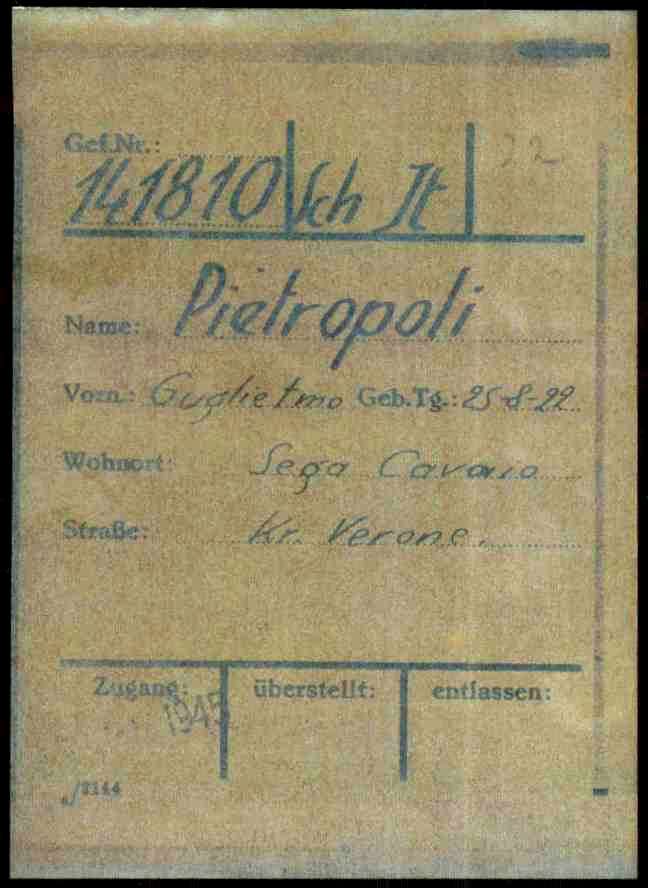 Gef.Nr.:
141810 Sch It 22
Name: Pietropoli
Vorn.: Guglietmo Geb.Tg.: 25-8-22
Wohnort: Sega Cavaio
Straße: Kr. Verone.
Zugang: überstellt: entlassen:
1945